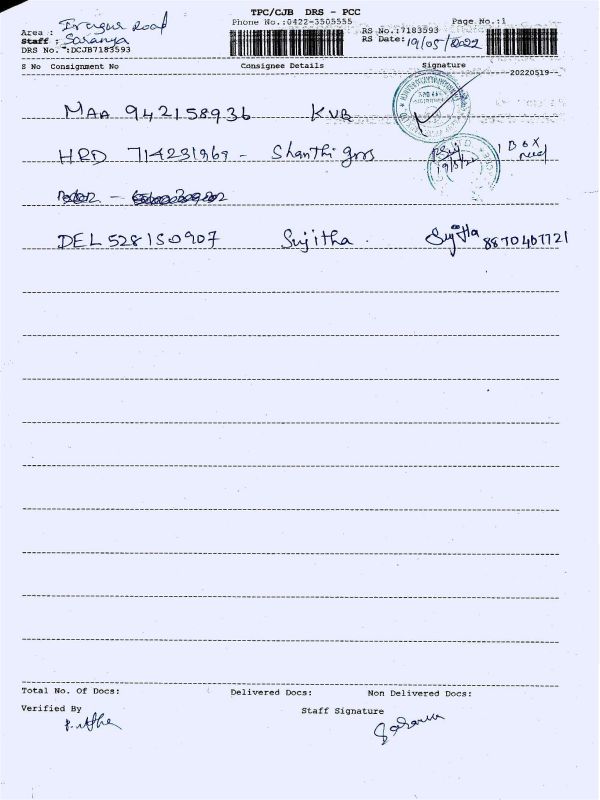 TPC/CJB DRS - PCC
Phone No.:0422-3505555 Page No.:1
Area : Irugur Road
RS No.:7183593
Staff : Saranya
RS Date: 19/05/2022
DRS No.:DCJB7183593
S No Consignment No Consignee Details Signature
--20220519--
MAA 942158936 KVB
HRD 714231969 - Shanthi gns 19/5/22 1 Box
DEL 528150907 Sujitha . Sujitha 8870407721
Total No. Of Docs: Delivered Docs: Non Delivered Docs:
Verified By Staff Signature
Saranya